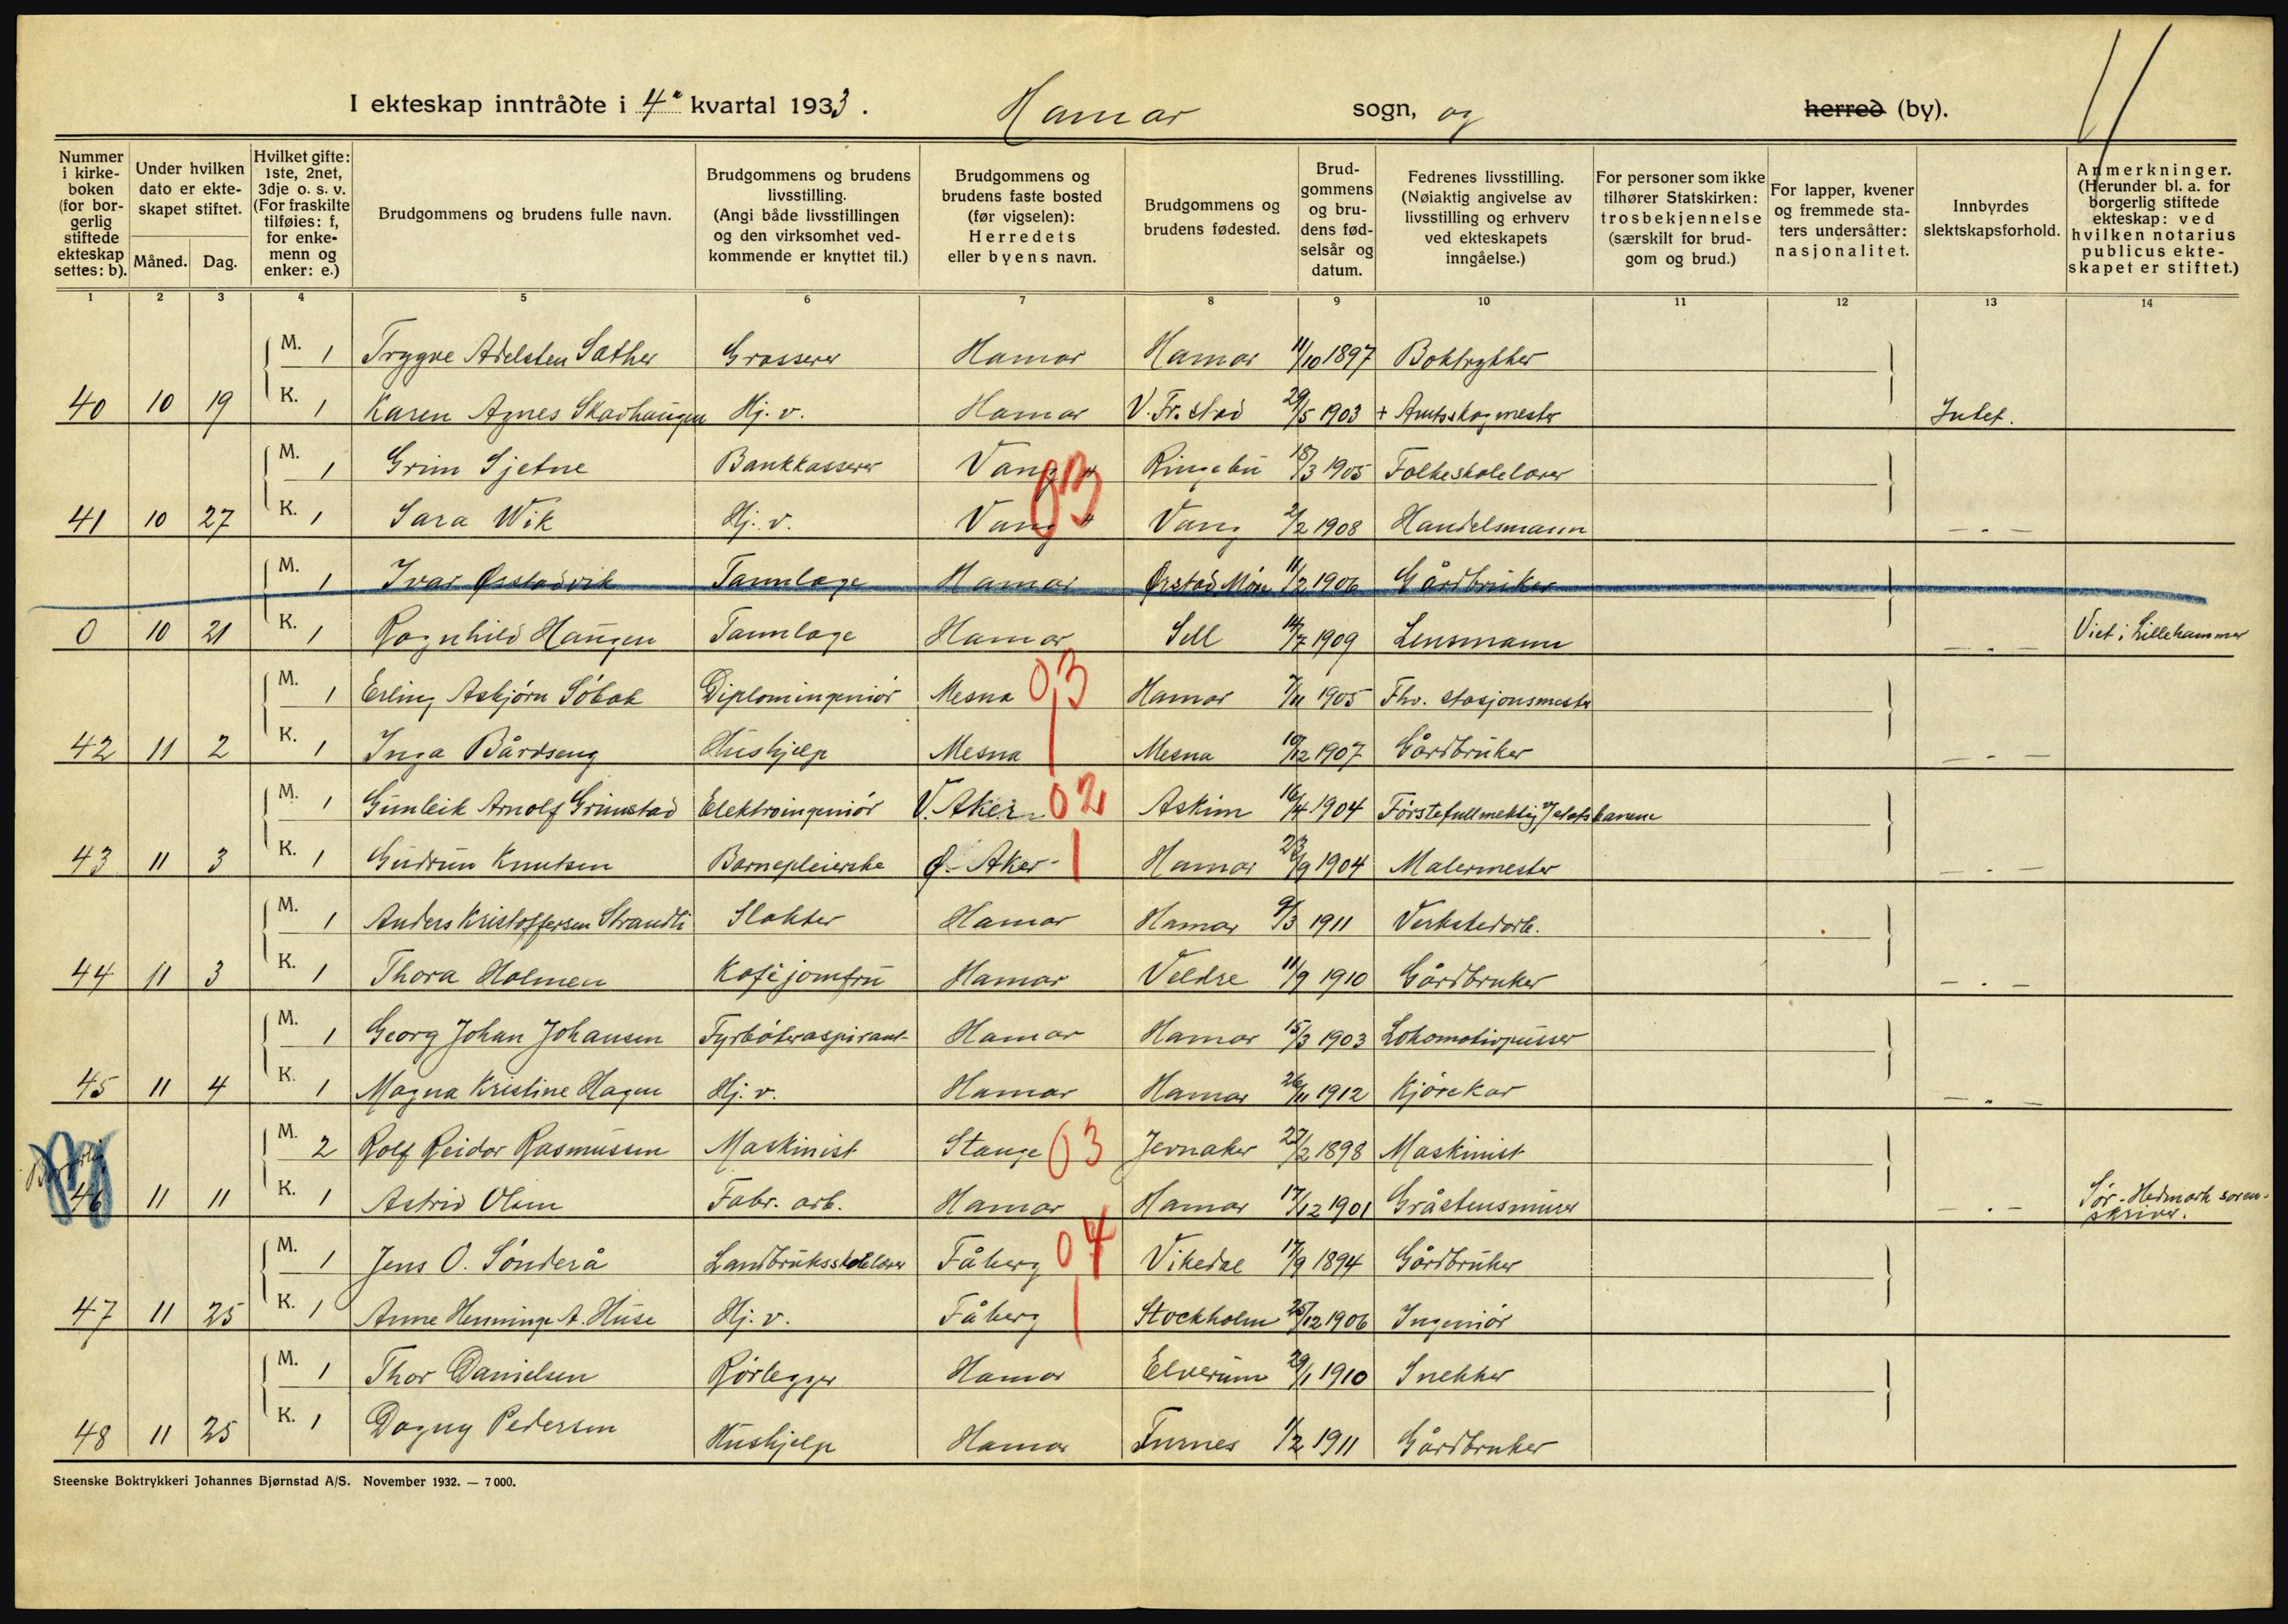 I ekteskap inntrådte i 4" kvartal 1933. Hamar sogn, og herred (by).
Nummer i kirke-boken (for bor-gerlig stiftede ekteskap settes: b).
Under hvilken dato er ekte-skapet stiftet.
Måned. Dag.
Hvilket gifte: 1ste, 2net, 3dje o. s. v. (For fraskilte tilføies: f, for enke-menn og enker: e.)
Brudgommens og brudens fulle navn.
Brudgommens og brudens livsstilling. (Angi både livsstillingen og den virksomhet ved-kommende er knyttet til.)
Brudgommens og brudens faste bosted (før vigselen): Herredets eller byens navn.
Brudgommens og brudens fødested.
Brud-gommens og bru-dens fød-selsår og datum.
Fedrenes livsstilling. (Nøiaktig angivelse av livsstilling og erhverv ved ekteskapets inngåelse.)
For personer som ikke tilhører Statskirken: trosbekjennelse (særskilt for brud-gom og brud.)
For lapper, kvener og fremmede sta-ters undersåtter: nasjonalitet.
Innbyrdes slektskapsforhold.
Anmerkninger. (Herunder bl. a. for borgerlig stiftede ekteskap: ved hvilken notarius publicus ekte-skapet er stiftet.)
1 2 3 4 5 6 7 8 9 10 11 12 13 14
M. 1 Trygve Adelsten Sæther Grosserer Hamar Hamar 11/10 1897 Boktrykker
40 10 19 K. 1 Karen Agnes Skavhaugen Hj. v. Hamar V. Fr.stad 29/5 1903 + Amtsskogmester Intet.
M. 1 Grim Sjetne Bankkasserer Vang " Ringebu 18/3 1905 Folkeskolelærer
03
41 10 27 K. 1 Sara Wik Hj. v. Vang " Vang 2/2 1908 Handelsmann — " —
M. 1 Ivar Ørstadvik Tannlæge Hamar Ørstad Møre 11/2 1906 Gårdbruker
0 10 21 K. 1 Ragnhild Haugen Tannlæge Hamar Sell 14/7 1909 Lensmann — " — Viet i Lillehammer
M. 1 Erling Asbjørn Sóbak Diplomingeniór Mesna 03 Hamar 7/11 1905 Fhv. stasjonsmester
42 11 2 K. 1 Inga Bårdseng Hushjelp Mesna Mesna 10/12 1907 Gårdbruker — " —
M. 1 Gunleik Arnolf Grimstad Elektroingeniór V. Aker 02 Askim 16/4 1904 Fórstefullmektig v/ statsbanene
43 11 3 K. 1 Gudrun Knutsen Barnepleierske Ø. Aker Hamar 23/9 1904 Malermester — " —
M. 1 Anders Kristoffersen Strandli Slakter Hamar Hamar 9/3 1911 Verkstedarb.
44 11 3 K. 1 Thora Holmen Kaféjomfru Hamar Veldre 11/9 1910 Gårdbruker — " —
M. 1 Georg Johan Johansen Fyrbóteraspirant Hamar Hamar 15/3 1903 Lokomotivpusser
45 11 4 K. 1 Magna Kristine Hagen Hj. v. Hamar Hamar 26/11 1912 Kjórekar — " —
M. 2 Rolf Reidar Rasmussen Maskinist Stange 03 Jevnaker 27/2 1898 Maskinist
46 11 11 K. 1 Astrid Olsen Fabr. arb. Hamar Hamar 17/12 1901 Gråstensmurer — " — Sór-Hedmark soren-
skriver.
M. 1 Jens O. Sónderå Landbruksskolelærer Fåberg 04 Vikedal 17/9 1894 Gårdbruker
47 11 25 K. 1 Anne Henninge A. Huse Hj. v. Fåberg Stockholm 25/12 1906 Ingeniór
M. 1 Thor Danielsen Rórlegger Hamar Elverum 29/1 1910 Snekker
48 11 25 K. 1 Dagny Pedersen Hushjelp Hamar Furnes 1/2 1911 Gårdbruker
Steenske Boktrykkeri Johannes Bjørnstad A/S. November 1932. — 7 000.